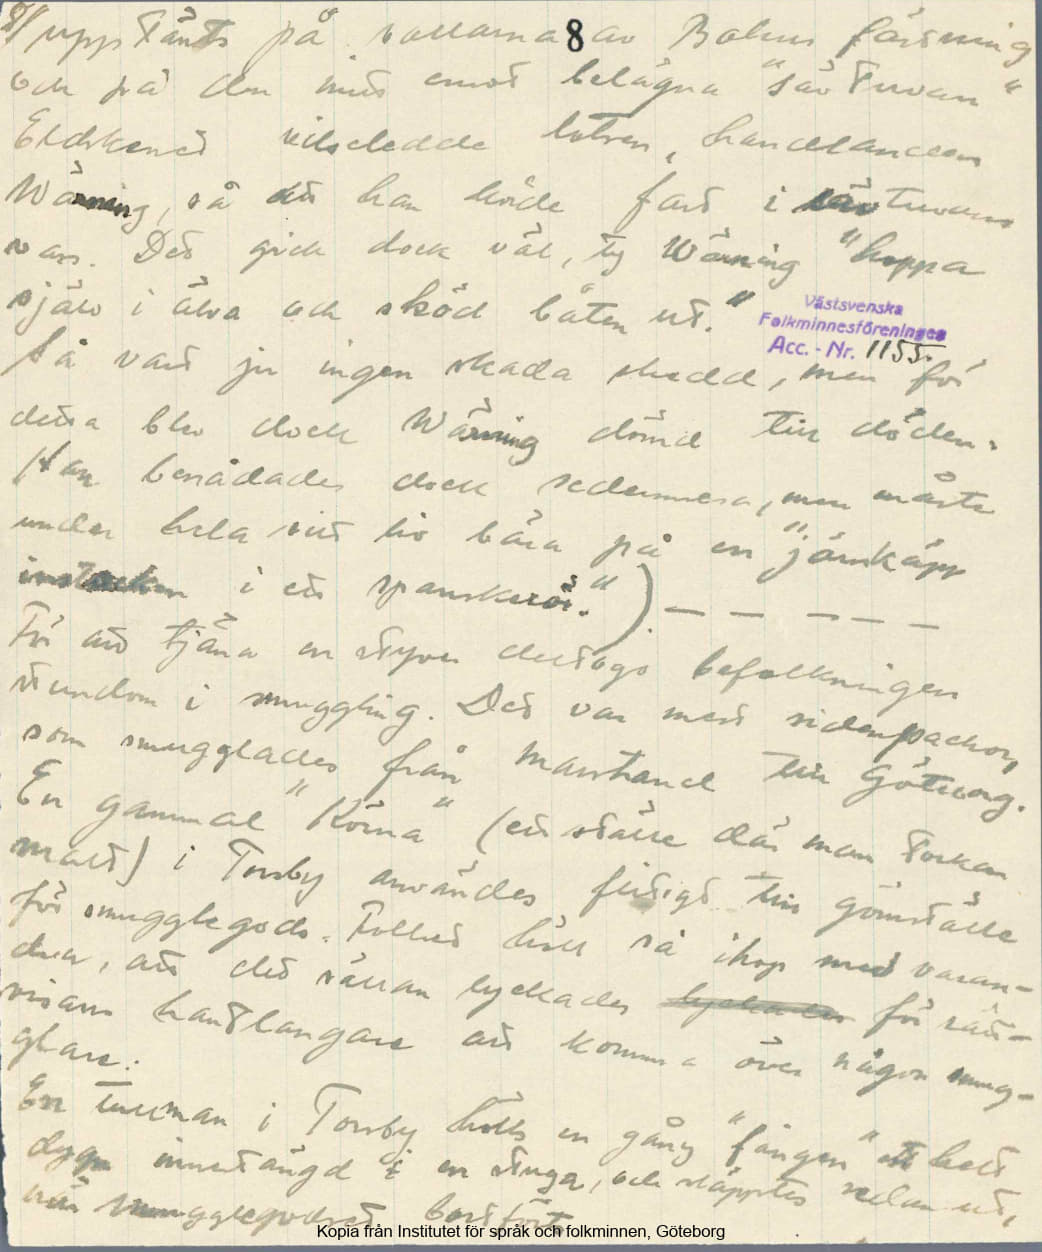 8/ upptänts på vallarna 8 av Bohus fästning
och på den mitt emot belägna "sävtuvan"
Eldskenet vilseledde lotsen, handlanden
Wärning, så att han körde fast i sävtuvans
vass. Det gick dock väl, ty Wärning "hoppa
själv i älva och sköd båten ut."
Västsvenska
Folkminnesföreningen
Acc. - Nr. 1155.
Så vart ju ingen skada skedd, men för
detta blev dock Wärning dömd till döden.
Han benådades dock sedermera, men måste
under hela sitt liv bära på en "järnkäpp
instucken i ett spanskrör.") — — — — —
För att tjäna en styver deltogo befolkningen
stundom i smuggling. Det var mest sidenpackor,
som smugglades från Marstrand till Göteborg.
En gammal "Körna" (ett ställe där man torkar
malt) i Torsby användes flitigt till gömställe
för smugglegods. Folket höll så ihop med varan-
dra, att det sällan lyckades lyckades för rätt-
visans hantlangare att komma över någon smug-
glare.
En tullman i Torsby hölls en gång "fången" ett helt
dygn innestängd i en stuga, och släpptes sedan ut,
när smugglegodset bortförts
Kopia från Institutet för språk och folkminnen, Göteborg